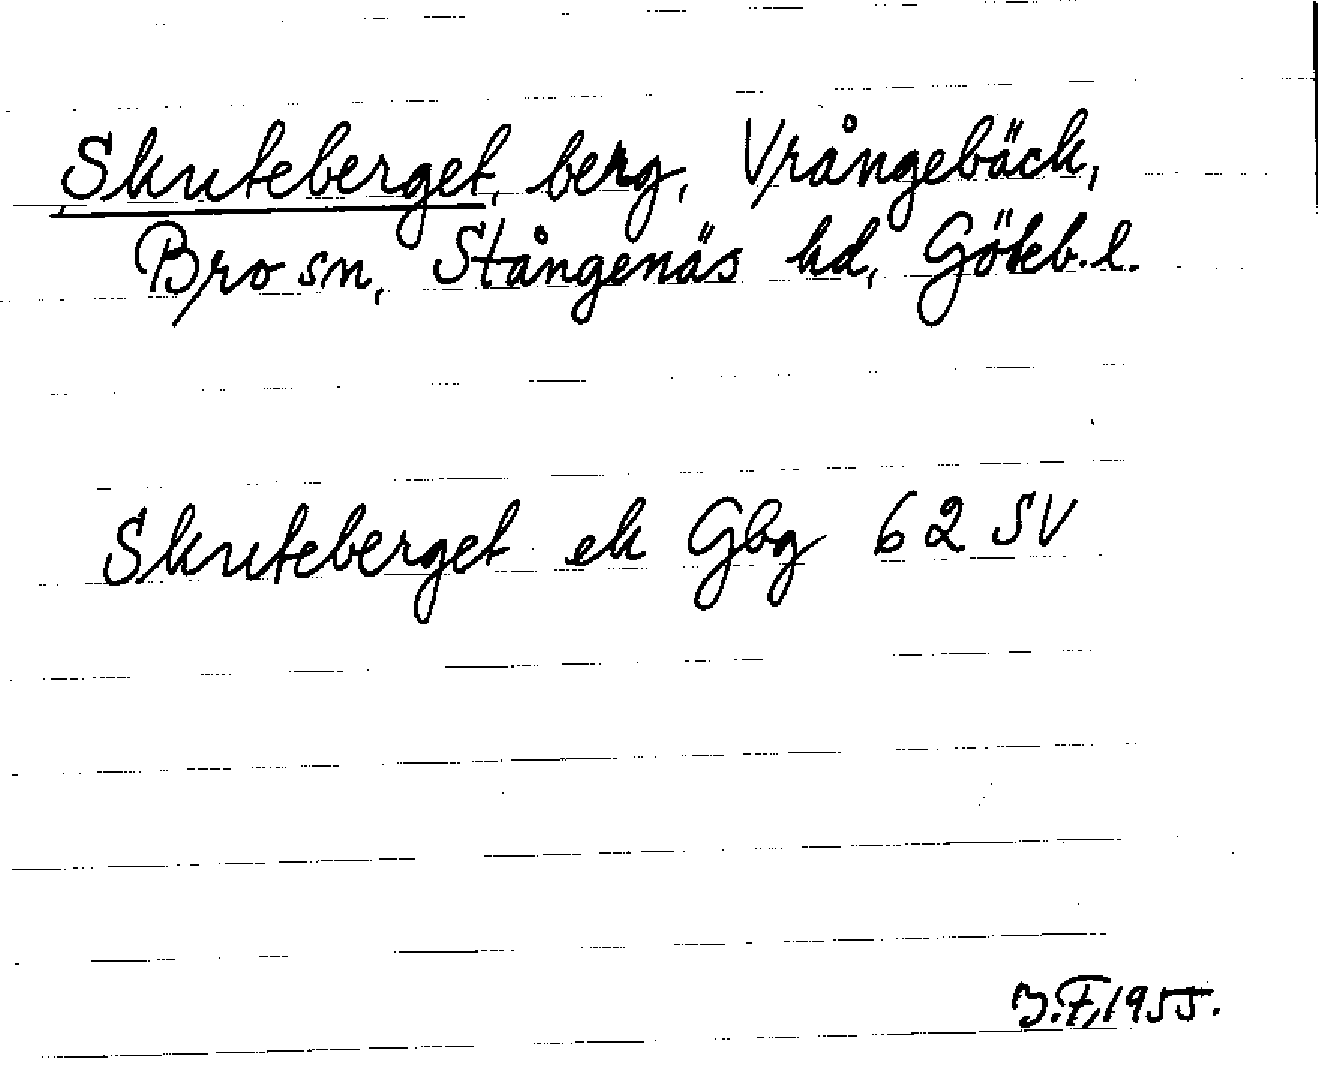 Skuteberget, berg, Vrångebäck,
Bro sn, Stångenäs hd, Göteb. l.
Skuteberget ek Gbg 62 SV
J.F. 1955.